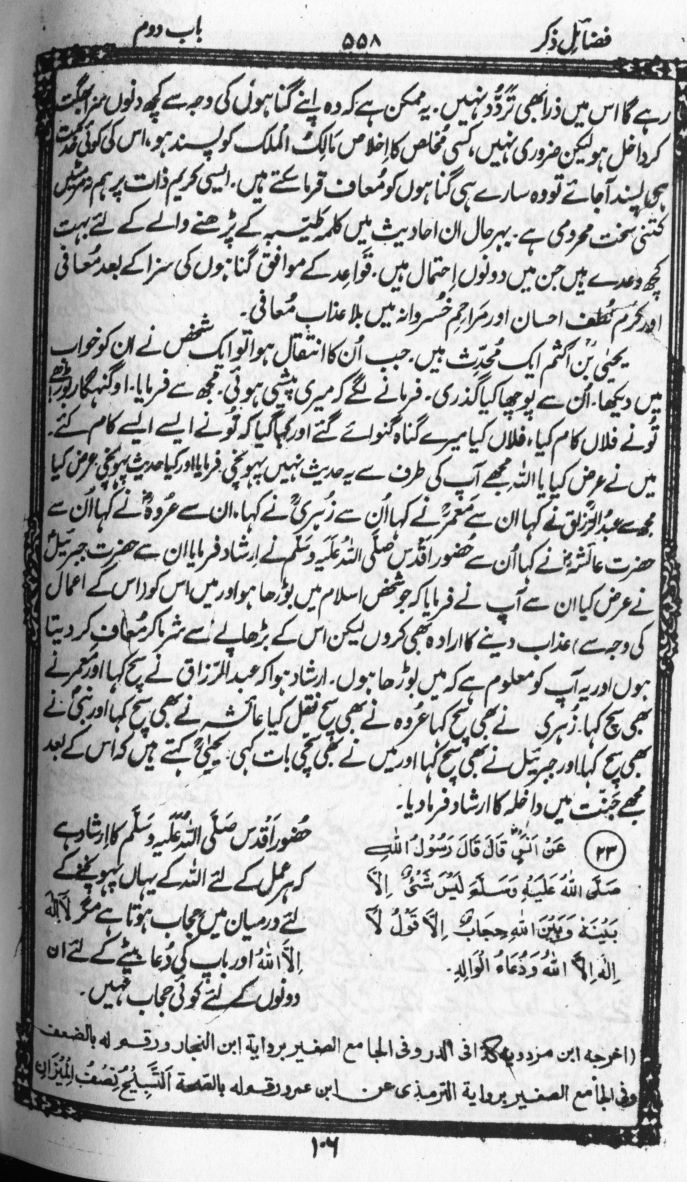 فضائل ذکر
۵۵۸
باب دوم
رہے گا اس میں ذرا بھی تردّد نہیں۔ یہ ممکن ہے کہ وہ اپنے گناہوں کی وجہ سے کچھ دنوں سزا بھگت
کر داخل ہو لیکن ضروری نہیں، کسی مخلص کا اخلاص مالکُ الملک کو پسند ہو، اس کی کوئی خدمت
ہی پسند آجائے تو وہ سارے ہی گناہوں کو مُعاف فرما سکتے ہیں۔ ایسی کریم ذات پر ہم نہ مر مٹیں
کتنی سخت محرومی ہے۔ بہرحال ان احادیث میں کلمہ طیّبہ کے پڑھنے والے کے لئے بہت
کچھ وعدے ہیں جن میں دونوں احتمال ہیں۔ قواعد کے موافق گناہوں کی سزا کے بعد مُعافی
اور کرم لُطف احسان اور مَراحِم خُسروانہ میں بلا عذاب مُعافی۔
یحیٰی بن اکثم ایک مُحدِّث ہیں۔ جب اُن کا انتقال ہوا تو ایک شخص نے ان کو خواب
میں دیکھا۔ اُن سے پوچھا کیا گذری۔ فرمانے لگے کہ میری پیشی ہوئی۔ مجھ سے فرمایا۔ او گنہگار بوڑھے
تُو نے فلاں کام کیا، فلاں کیا میرے گناہ گنوائے گئے اور کہا گیا کہ تُو نے ایسے ایسے کام کئے۔
میں نے عرض کیا یا اللہ مجھے آپ کی طرف سے یہ حدیث نہیں پہونچی۔ فرمایا اور کیا حدیث پہونچی۔ عرض کیا
مجھ سے عبدُ الرّزاق نے کہا ان سے مَعمرؒ نے کہا اُن سے زُہریؒ نے کہا، ان سے عُروہؓ نے کہا اُن سے
حضرت عائشہؓ نے کہا اُن سے حُضور اَقدس صَلَّی اللہُ عَلَیْہِ وَسَلَّم نے اِرشاد فرمایا ان سے حضرت جبرئیلؑ
نے عرض کیا ان سے آپ نے فرمایا کہ جو شخص اسلام میں بوڑھا ہو اور میں اس کو (اس کے اعمال
کی وجہ سے) عذاب دینے کا ارادہ بھی کروں لیکن اس کے بڑھاپے سے شرما کر مُعاف کر دیتا
ہوں اور یہ آپ کو معلوم ہے کہ میں بوڑھا ہوں۔ ارشاد ہوا کہ عبد الرّزاق نے سچ کہا اور مَعمر نے
بھی سچ کہا۔ زہری نے بھی سچ کہا عُروہ نے بھی سچ نقل کیا عائشہ نے بھی سچ کہا اور نبیؐ نے
بھی سچ کہا اور جبرئیل نے بھی سچ کہا اور میں نے بھی سچی بات کہی۔ یحیٰیؒ کہتے ہیں کہ اس کے بعد
مجھے جنّت میں داخلہ کا ارشاد فرما دیا۔
(۲۳) عَنْ اَنَسٍؓ قَالَ قَالَ رَسُوْلُ اللهِ
صَلَّى اللهُ عَلَيْهِ وَسَلَّمَ لَيْسَ شَيْءٌ اِلَّا
بَيْنَهٗ وَبَيْنَ اللهِ حِجَابٌ اِلَّا قَوْلُ لَا
اِلٰهَ اِلَّا اللهُ وَدُعَاءُ الْوَالِدِ۔
حُضور اَقدس صَلَّی اللہُ عَلَیْہِ وَسَلَّم کا ارشاد ہے
کہ ہر عمل کے لئے اللہ کے یہاں پہونچنے کے
لئے درمیان میں حجاب ہوتا ہے مگر لَا اِلٰہَ
اِلَّا اللہُ اور باپ کی دُعا بیٹے کے لئے ان
دونوں کے لئے کوئی حجاب نہیں۔
(اخرجه ابن مردويه كذا فى الدر وفى الجامع الصغير برواية ابن النجار ورقم له بالضعف
وفى الجامع الصغير برواية الترمذى عن ابن عمرو رقم له بالصحة اَلتَّسْبِيْحُ نِصْفُ الْمِيْزَانِ
۱۰۶